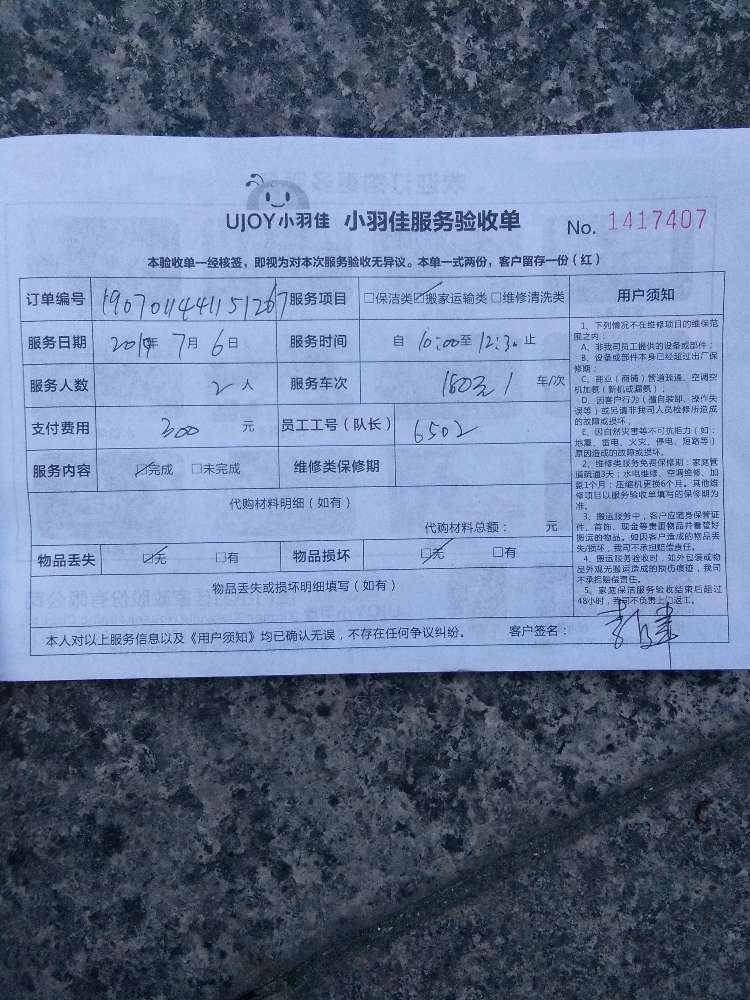 UJOY小羽佳 小羽佳服务验收单 No. 1417407
本验收单一经核签，即视为对本次服务验收无异议。本单一式两份，客户留存一份（红）
订单编号 1907011441151267 服务项目 □保洁类☑搬家运输类□维修清洗类
服务日期 2019年 7月 6日 服务时间 自 10:00至 12:30止
服务人数 2人 服务车次 180元 1 车/次
支付费用 300 元 员工工号（队长） 6502
服务内容 ☑完成 □未完成 维修类保修期
代购材料明细（如有）
代购材料总额： 元
物品丢失 ☑无 □有 物品损坏 ☑无 □有
物品丢失或损坏明细填写（如有）
本人对以上服务信息以及《用户须知》均已确认无误，不存在任何争议纠纷。 客户签名：
用户须知
1、下列情况不在维修项目的维保范
围之内：
A、非我司员工提供的设备或部件；
B、设备或部件本身已经超过出厂保
修期；
C、商业（商铺）管道疏通、空调空
机加氨（新机或漏氨）；
D、因客户行为（擅自装卸、操作失
误等）或另请非我司人员检修所造成
的故障或损坏，
E、因自然灾害等不可抗拒力（如：
地震、雷电、火灾、停电、短路等）
原因造成的故障或损坏。
2、维修类服务免费保修期：家庭管
道疏通3天；水电维修、空调维修、加
氨1个月；压缩机更换6个月。其他维
修项目以服务验收单填写的保修期为
准。
3、搬运服务中，客户应随身保管证
件、首饰、现金等贵重物品并看管好
搬运的物品。如因客户造成的物品丢
失/损坏，我司不承担赔偿责任。
4、搬运服务验收时，如外包装或物
品外观无搬运造成的损伤痕迹，我司
不承担赔偿责任。
5、家庭保洁服务验收结束后超过
48小时，我司不负责上门返工。